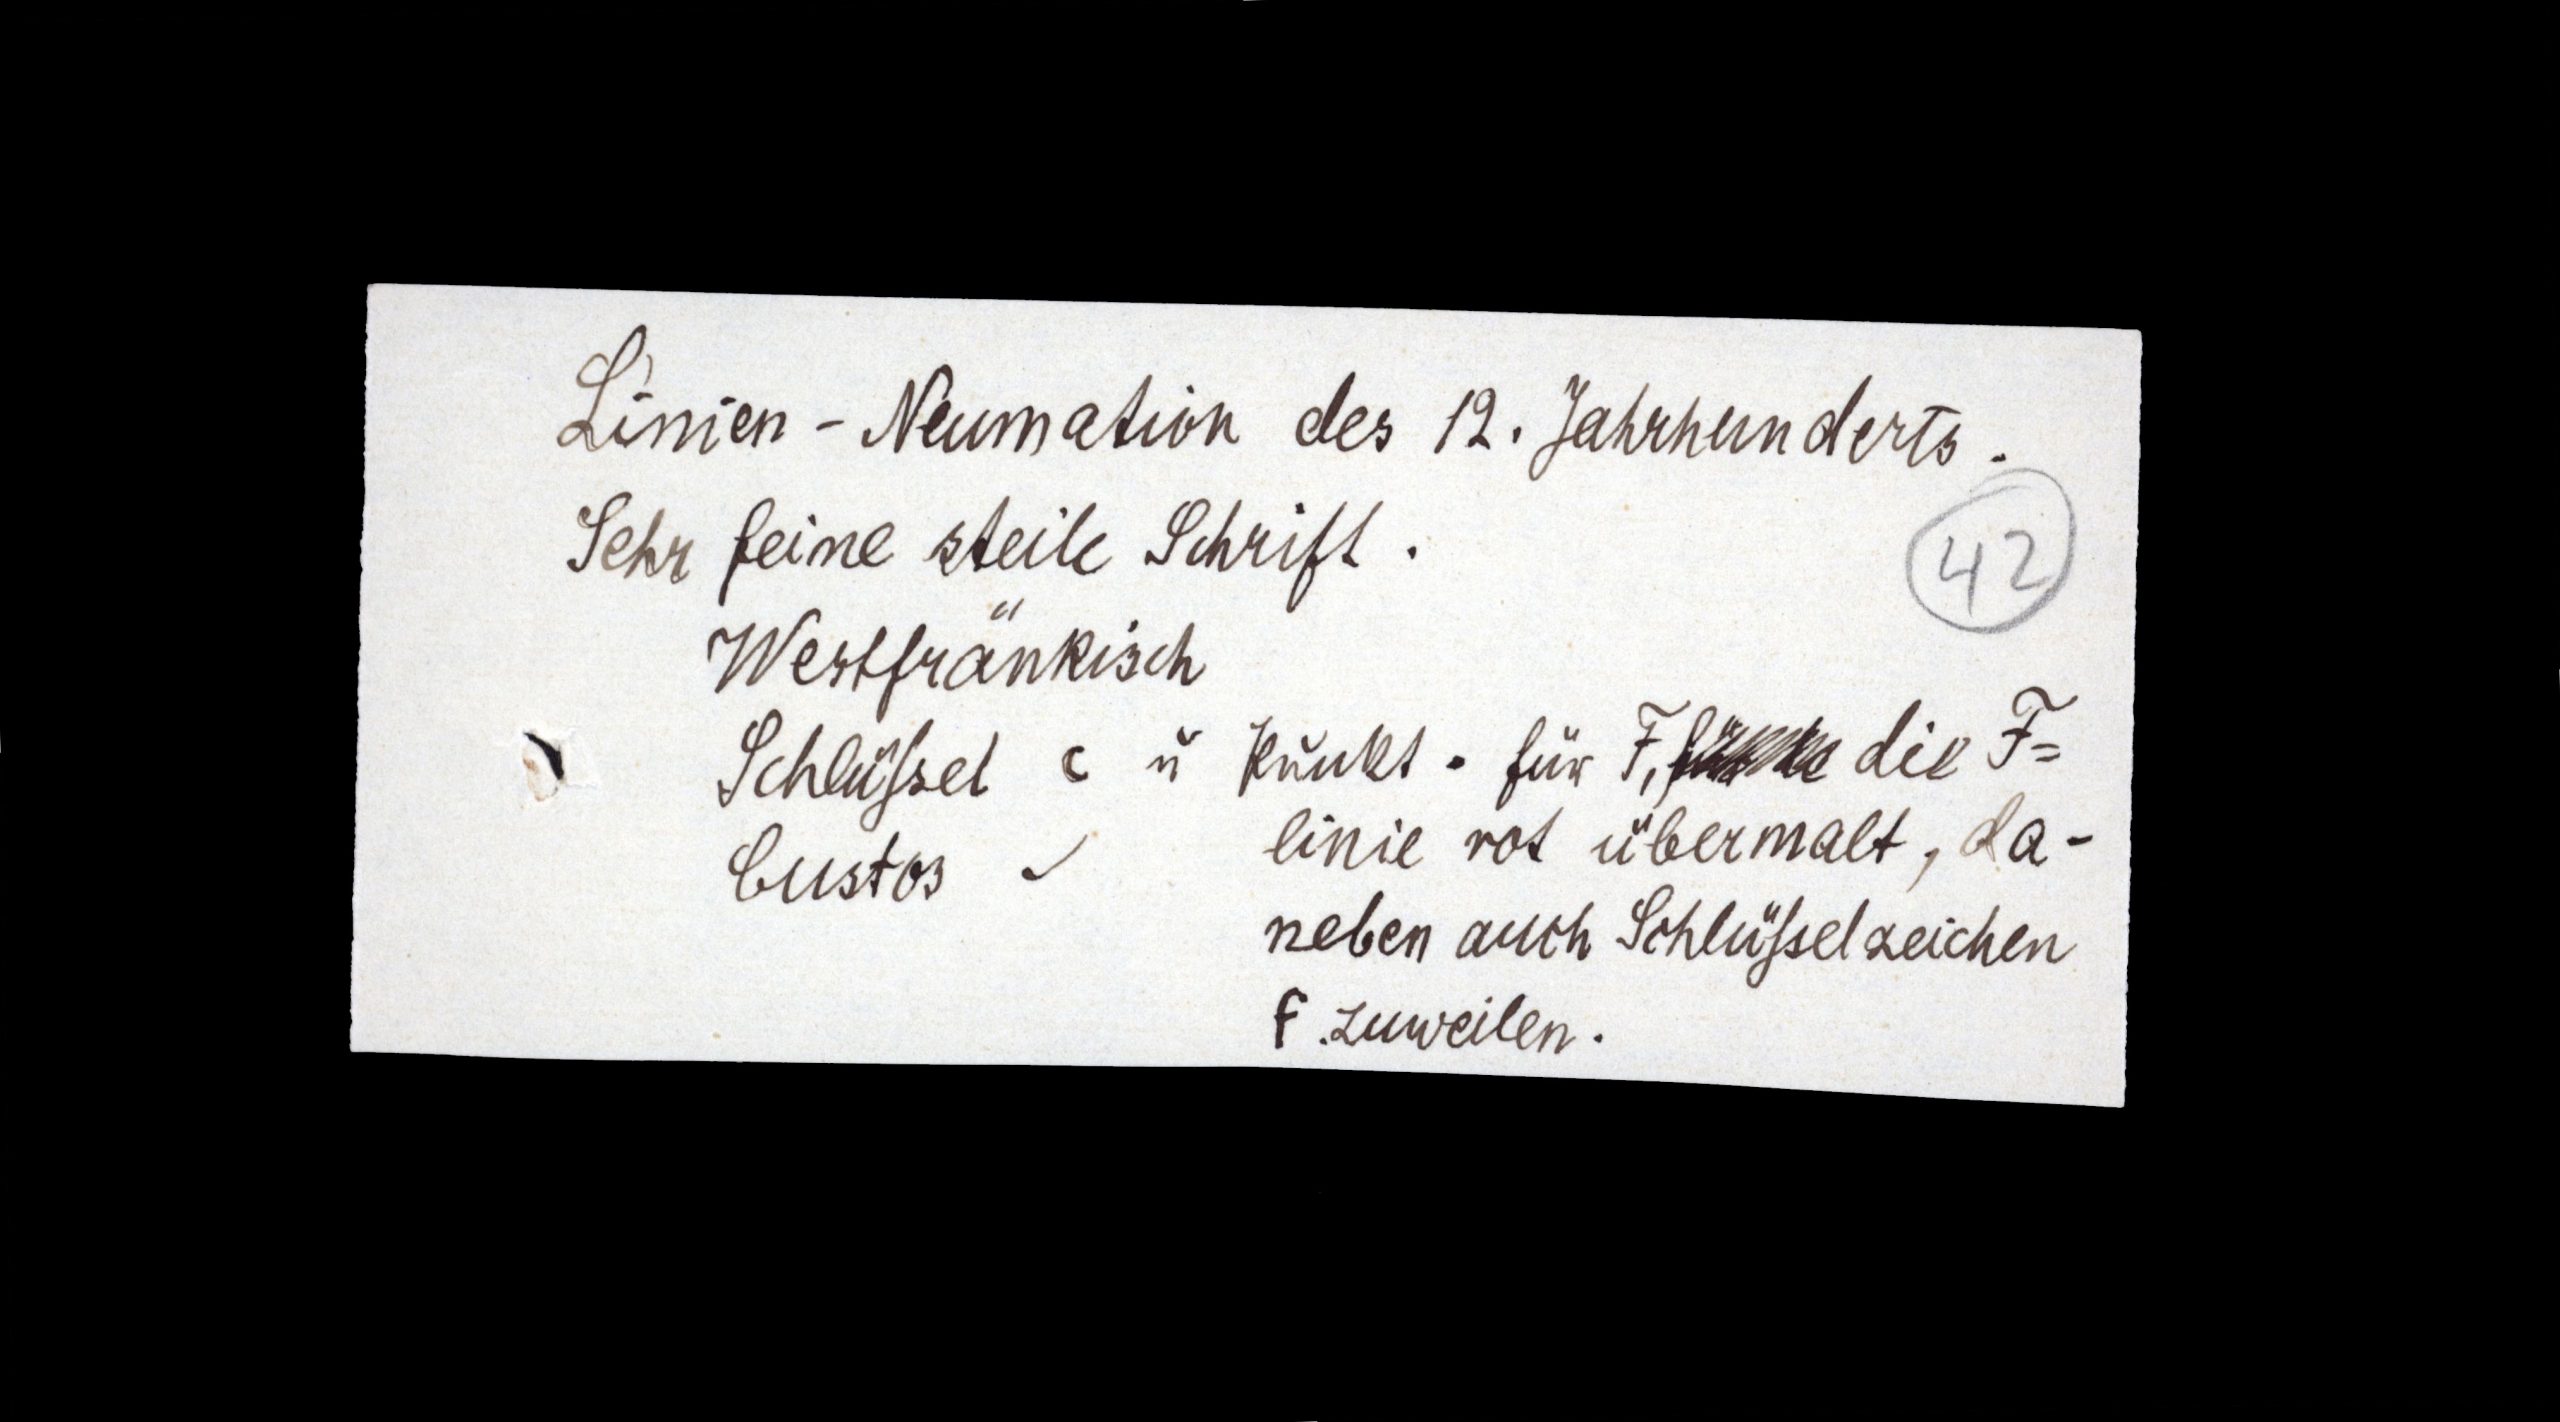 Linien - Neumation des 12. Jahrhunderts.
Sehr feine steile Schrift.
42
Westfränkisch
Schlüssel c u Punkt . für F, die F=
Custos ✓ linie rot übermalt, da-
neben auch Schlüsselzeichen
F zuweilen.